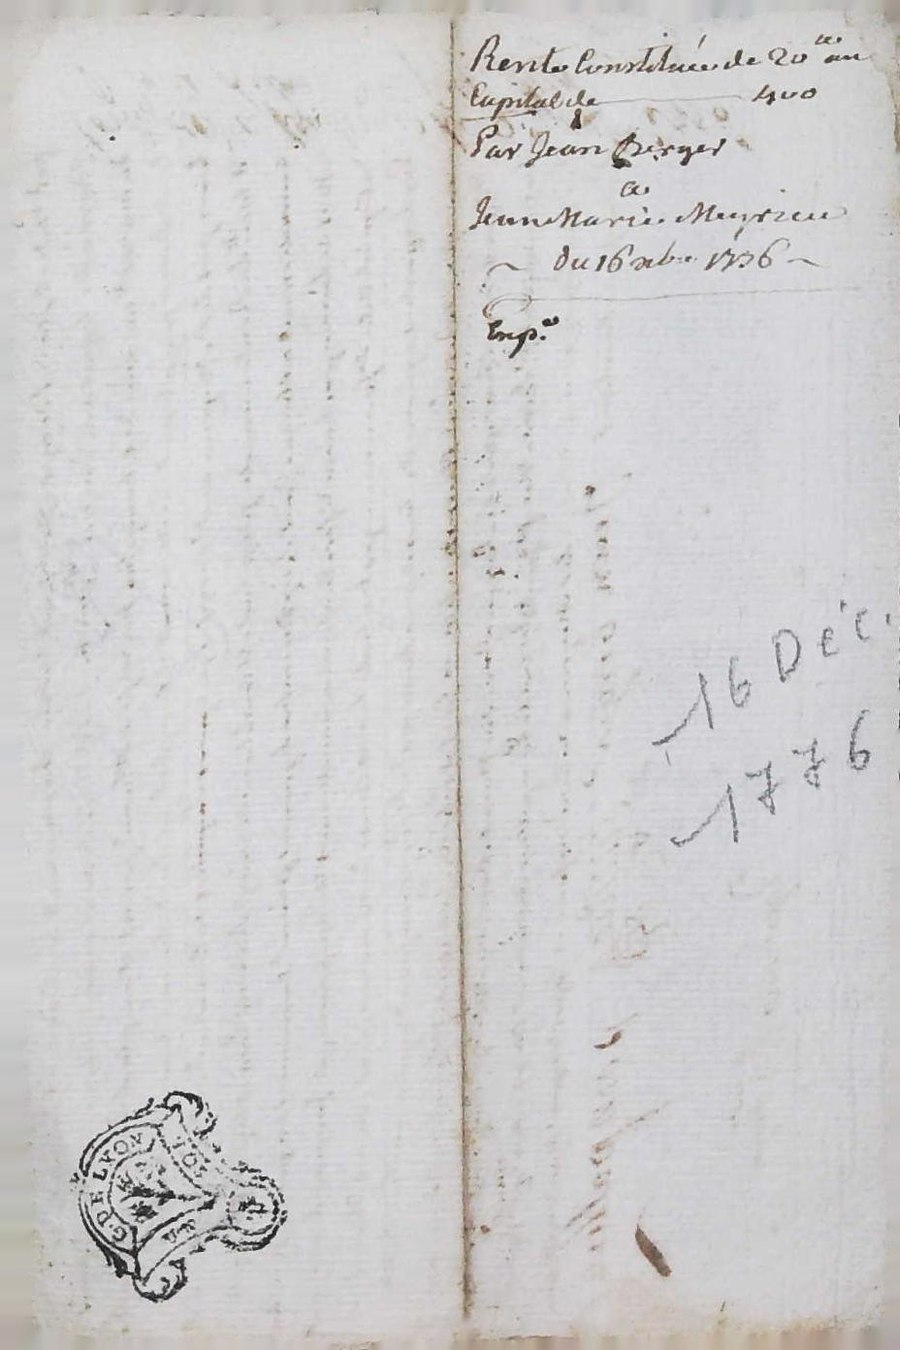 Rente Constituée de 20ll au
Capital de 400ll
Par Jean Berger
a
Jean Marie Meyrieu
du 16 xbre 1776
Exp.on
16 Déc.
1776
G. DE LYON